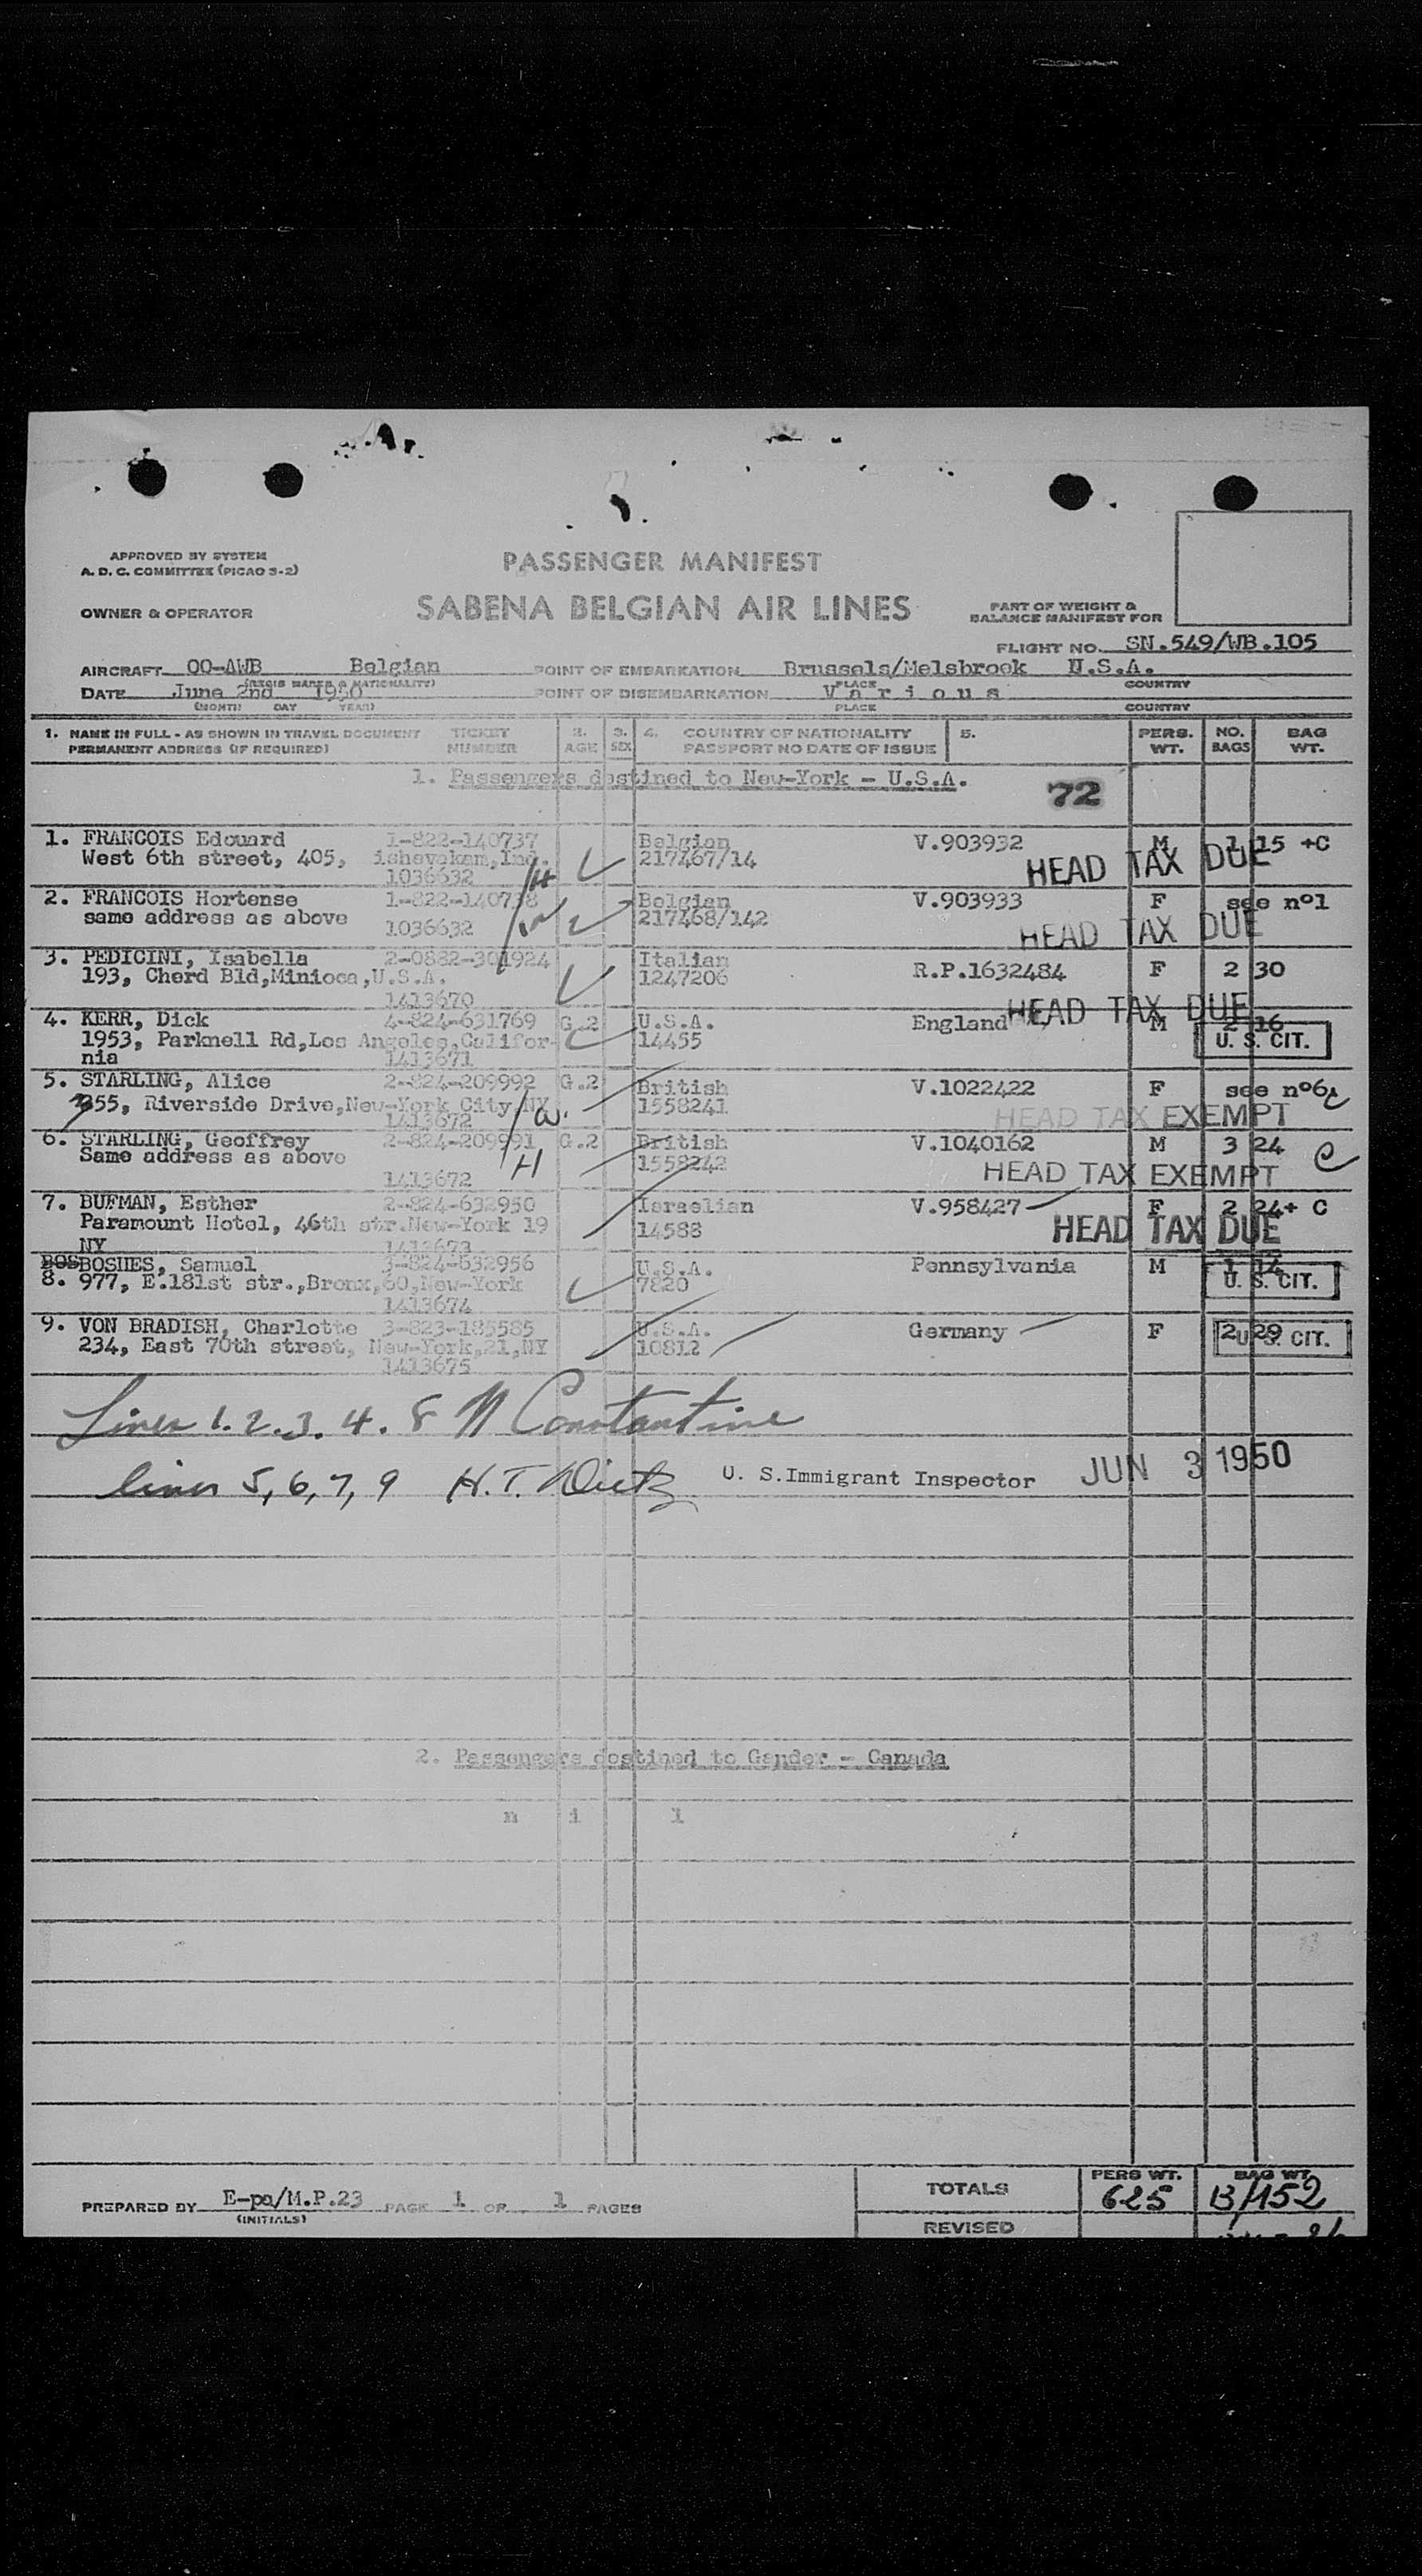 APPROVED BY SYSTEM
A. D. C. COMMITTEE (PICAO 3-2)
PASSENGER MANIFEST
OWNER & OPERATOR
SABENA BELGIAN AIR LINES
PART OF WEIGHT &
BALANCE MANIFEST FOR
FLIGHT NO. SN.549/WB.105
AIRCRAFT OO-AWB Belgian POINT OF EMBARKATION Brussels/Melsbroek U.S.A.
(REGIS MARKS & NATIONALITY) PLACE COUNTRY
DATE June 2nd 1950 POINT OF DISEMBARKATION Various
(MONTH DAY YEAR) PLACE COUNTRY
1. NAME IN FULL - AS SHOWN IN TRAVEL DOCUMENT TICKET 2. 3. 4. COUNTRY OF NATIONALITY 5. PERS. NO. BAG
PERMANENT ADDRESS (IF REQUIRED) NUMBER AGE SEX PASSPORT NO DATE OF ISSUE WT. BAGS WT.
1. Passengers destined to New-York - U.S.A.
72
1. FRANCOIS Edouard 1-822-140737 Belgian V.903932 M 1 15 +C
West 6th street, 405, 217467/14
HEAD TAX DUE
1036632 H
2. FRANCOIS Hortense 1-822-140738 Belgian V.903933 F see nº1
same address as above 217468/142
1036632 W HEAD TAX DUE
3. PEDICINI, Isabella 2-0882-301924 Italian R.P.1632484 F 2 30
193, Cherd Bld,Minioca,U.S.A. 1247206
1413670 HEAD TAX DUE
4. KERR, Dick 4-824-631769 G.2 U.S.A. England M 2 16
1953, Parknell Rd,Los Angeles,Califor- 14455 U. S. CIT.
nia 1413671
5. STARLING, Alice 2-824-209992 G.2 British V.1022422 F see nº6
355, Riverside Drive,New-York City,NY 1558241
1413672 W. HEAD TAX EXEMPT
6. STARLING, Geoffrey 2-824-209991 G.2 British V.1040162 M 3 24 C
Same address as above 1558242
1413672 H HEAD TAX EXEMPT
7. BUFMAN, Esther 2-824-632950 Israelian V.958427 F 2 24+ C
Paramount Hotel, 46th str.New-York 19 14588 HEAD TAX DUE
NY 1413673
BOSBOSHES, Samuel 3-824-632956 U.S.A. Pennsylvania M
8. 977, E.181st str.,Bronx,60,New-York 7820 U. S. CIT.
1413674
9. VON BRADISH, Charlotte 3-823-185585 U.S.A. Germany F 2 29
234, East 70th street, New-York,21,NY 10812 U. S. CIT.
1413675
Lines 1. 2. 3. 4. 8 N Constantine
lines 5, 6, 7, 9 H. T. Dietz U. S.Immigrant Inspector JUN 3 1950
2. Passengers destined to Gander - Canada
n i l
PREPARED BY E-pa/M.P.23 PAGE 1 OF 1 PAGES
(INITIALS)
TOTALS PERS WT. 625 BAG WT. 13/152
REVISED